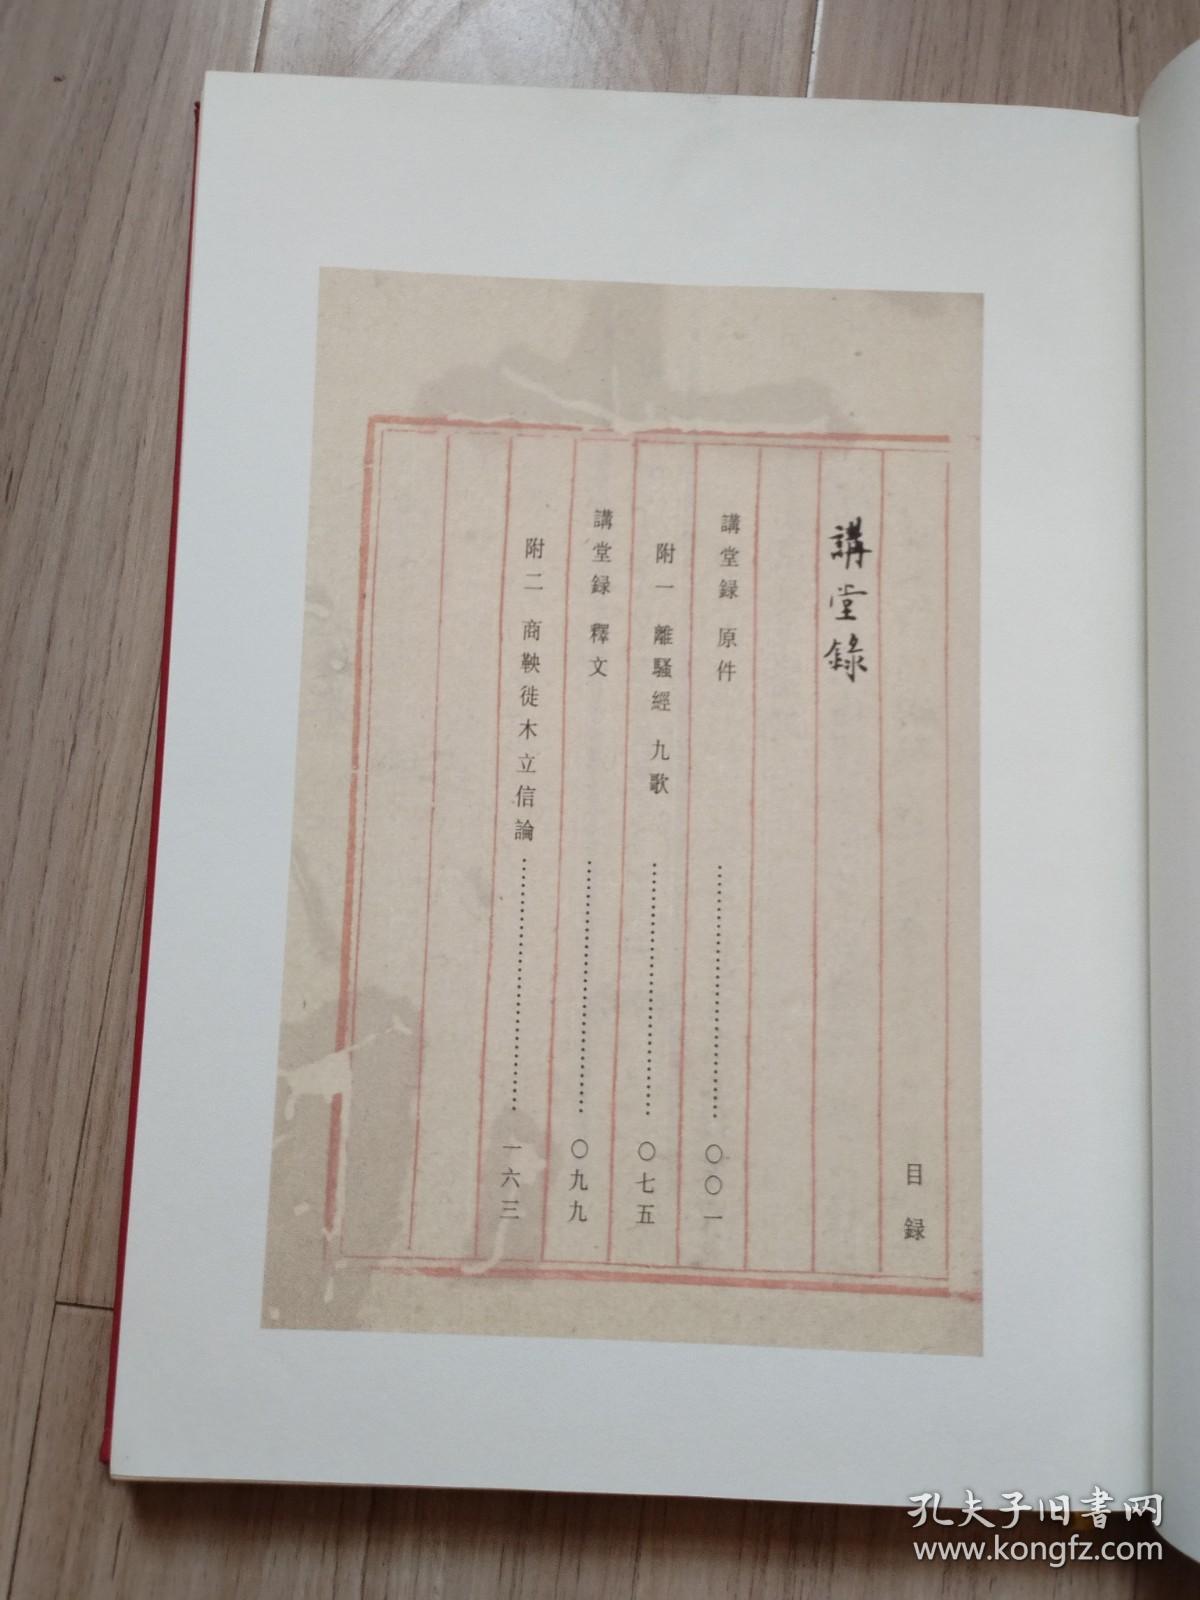 目録
講堂錄
講堂録 原件 ○○一
附一 離騷經 九歌 ○七五
講堂録 釋文 ○九九
附二 商鞅徙木立信論 一六三
孔夫子旧书网
www.kongfz.com